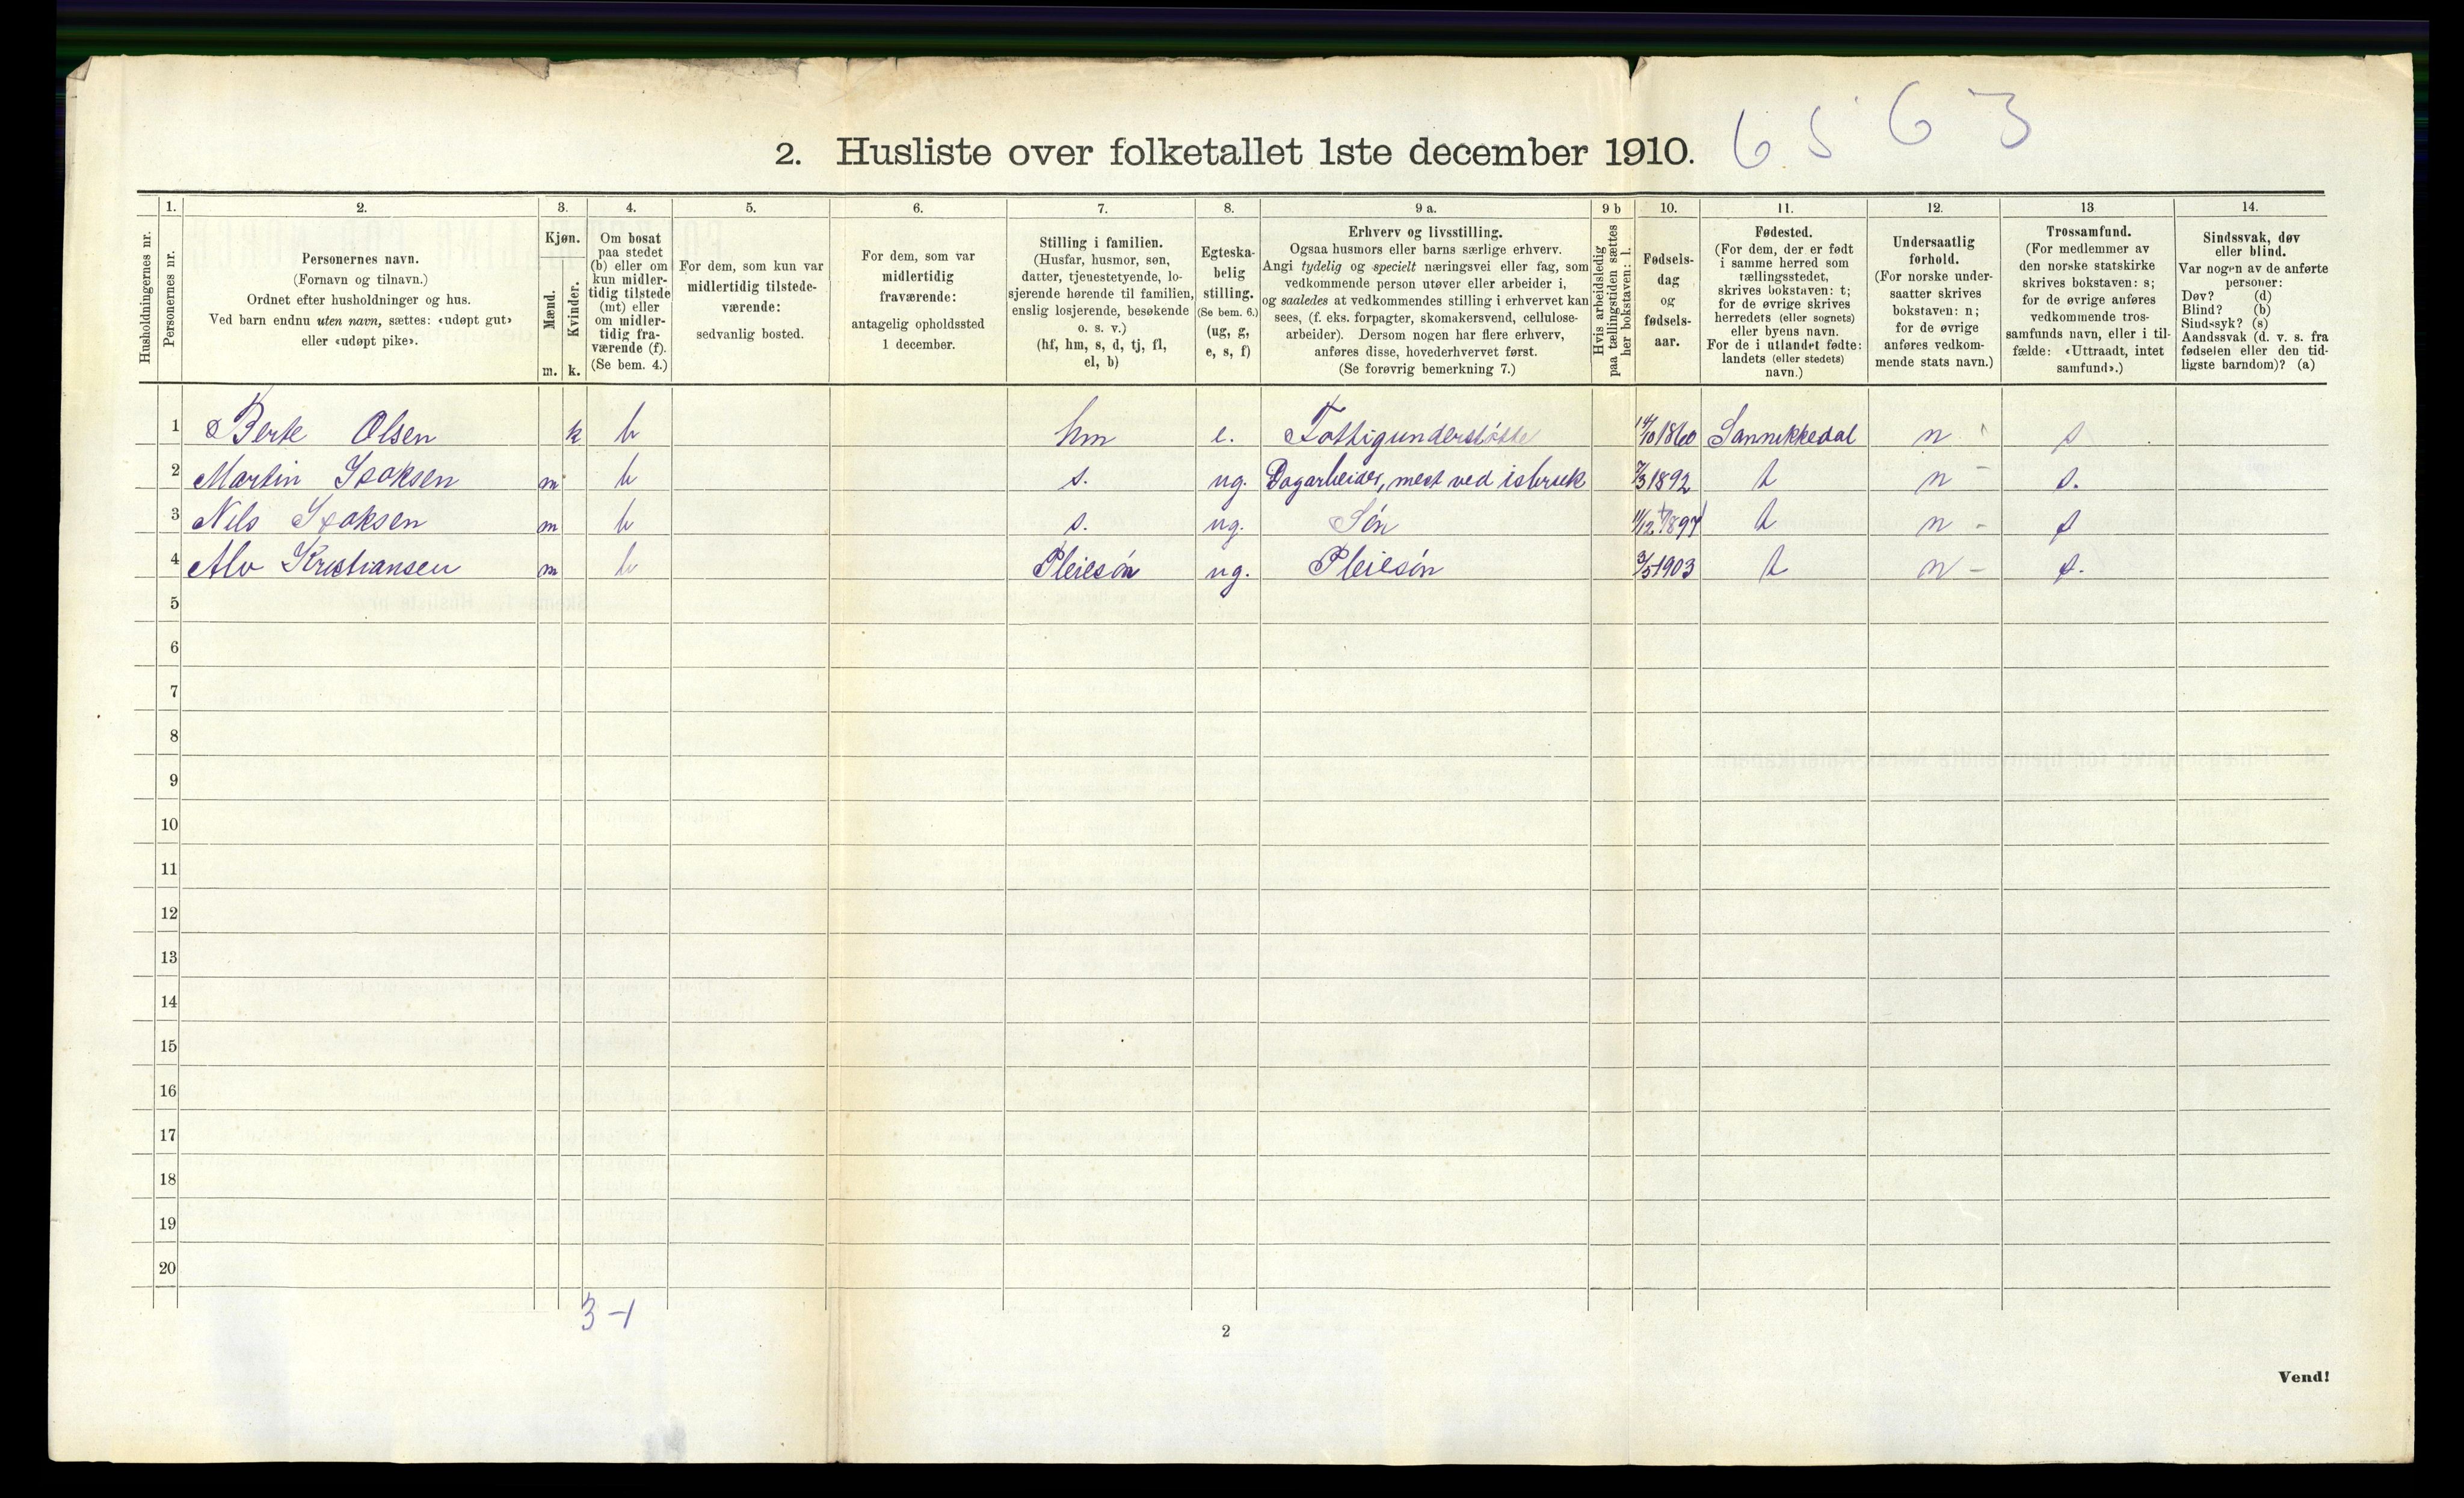 6563
2. Husliste over folketallet 1ste december 1910.
Husholdningernes nr.
1.
Personernes nr.
2.
Personernes navn.
(Fornavn og tilnavn.)
Ordnet efter husholdninger og hus.
Ved barn endnu uten navn, sættes: «udøpt gut»
eller «udøpt pike».
3.
Kjøn.
Mænd.
Kvinder.
m. k.
4.
Om bosat
paa stedet
(b) eller om
kun midler-
tidig tilstede
(mt) eller
om midler-
tidig fra-
værende (f).
(Se bem. 4.)
5.
For dem, som kun var
midlertidig tilstede-
værende:
sedvanlig bosted.
6.
For dem, som var
midlertidig
fraværende:
antagelig opholdssted
1 december.
7.
Stilling i familien.
(Husfar, husmor, søn,
datter, tjenestetyende, lo-
sjerende hørende til familien,
enslig losjerende, besøkende
o. s. v.)
(hf, hm, s, d, tj, fl,
el, b)
8.
Egteska-
belig
stilling.
(Se bem. 6.)
(ug, g,
e, s, f)
9 a.
Erhverv og livsstilling.
Ogsaa husmors eller barns særlige erhverv.
Angi tydelig og specielt næringsvei eller fag, som
vedkommende person utøver eller arbeider i,
og saaledes at vedkommendes stilling i erhvervet kan
sees, (f. eks. forpagter, skomakersvend, cellulose-
arbeider). Dersom nogen har flere erhverv,
anføres disse, hovederhvervet først.
(Se forøvrig bemerkning 7.)
9 b
Hvis arbeidsledig
paa tællingstiden sættes
her bokstaven: l.
10.
Fødsels-
dag
og
fødsels-
aar.
11.
Fødested.
(For dem, der er født
i samme herred som
tællingsstedet,
skrives bokstaven: t;
for de øvrige skrives
herredets (eller sognets)
eller byens navn.
For de i utlandet fødte:
landets (eller stedets)
navn.)
12.
Undersaatlig
forhold.
(For norske under-
saatter skrives
bokstaven: n;
for de øvrige
anføres vedkom-
mende stats navn.)
13
Trossamfund.
(For medlemmer av
den norske statskirke
skrives bokstaven: s;
for de øvrige anføres
vedkommende tros-
samfunds navn, eller i til-
fælde: «Uttraadt, intet
samfund».)
14.
Sindssvak, døv
eller blind.
Var nogen av de anførte
personer:
Døv? (d)
Blind? (b)
Sindssyk? (s)
Aandssvak (d. v. s. fra
fødselen eller den tid-
ligste barndom)? (a)
1 Berte Olsen k b hm e. Fattigunderstøtte 14/10 1860 Sannikkedal n s
2 Martin Isaksen m b s. ug. Dagarbeider, mest ved isbruk 7/3 1892 t n - s.
3 Nils Isaksen m b s. ug. Søn 11/12 1897 t n - s
4 Alv Kristiansen m b Pleiesøn ug. Pleiesøn 3/5 1903 t n - s.
5
6
7
8
9
10
11
12
13
14
15
16
17
18
19
20
3-1
2
Vend!